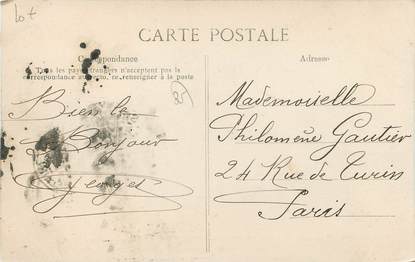 Lot
CARTE POSTALE
Correspondance
Tous les pays étrangers n'acceptent pas la
correspondance au verso, se renseigner à la poste
Adresse
85
Bien le
Bonjour
Georges
Mademoiselle
Philomène Gautier
24 Rue de Turin
Paris